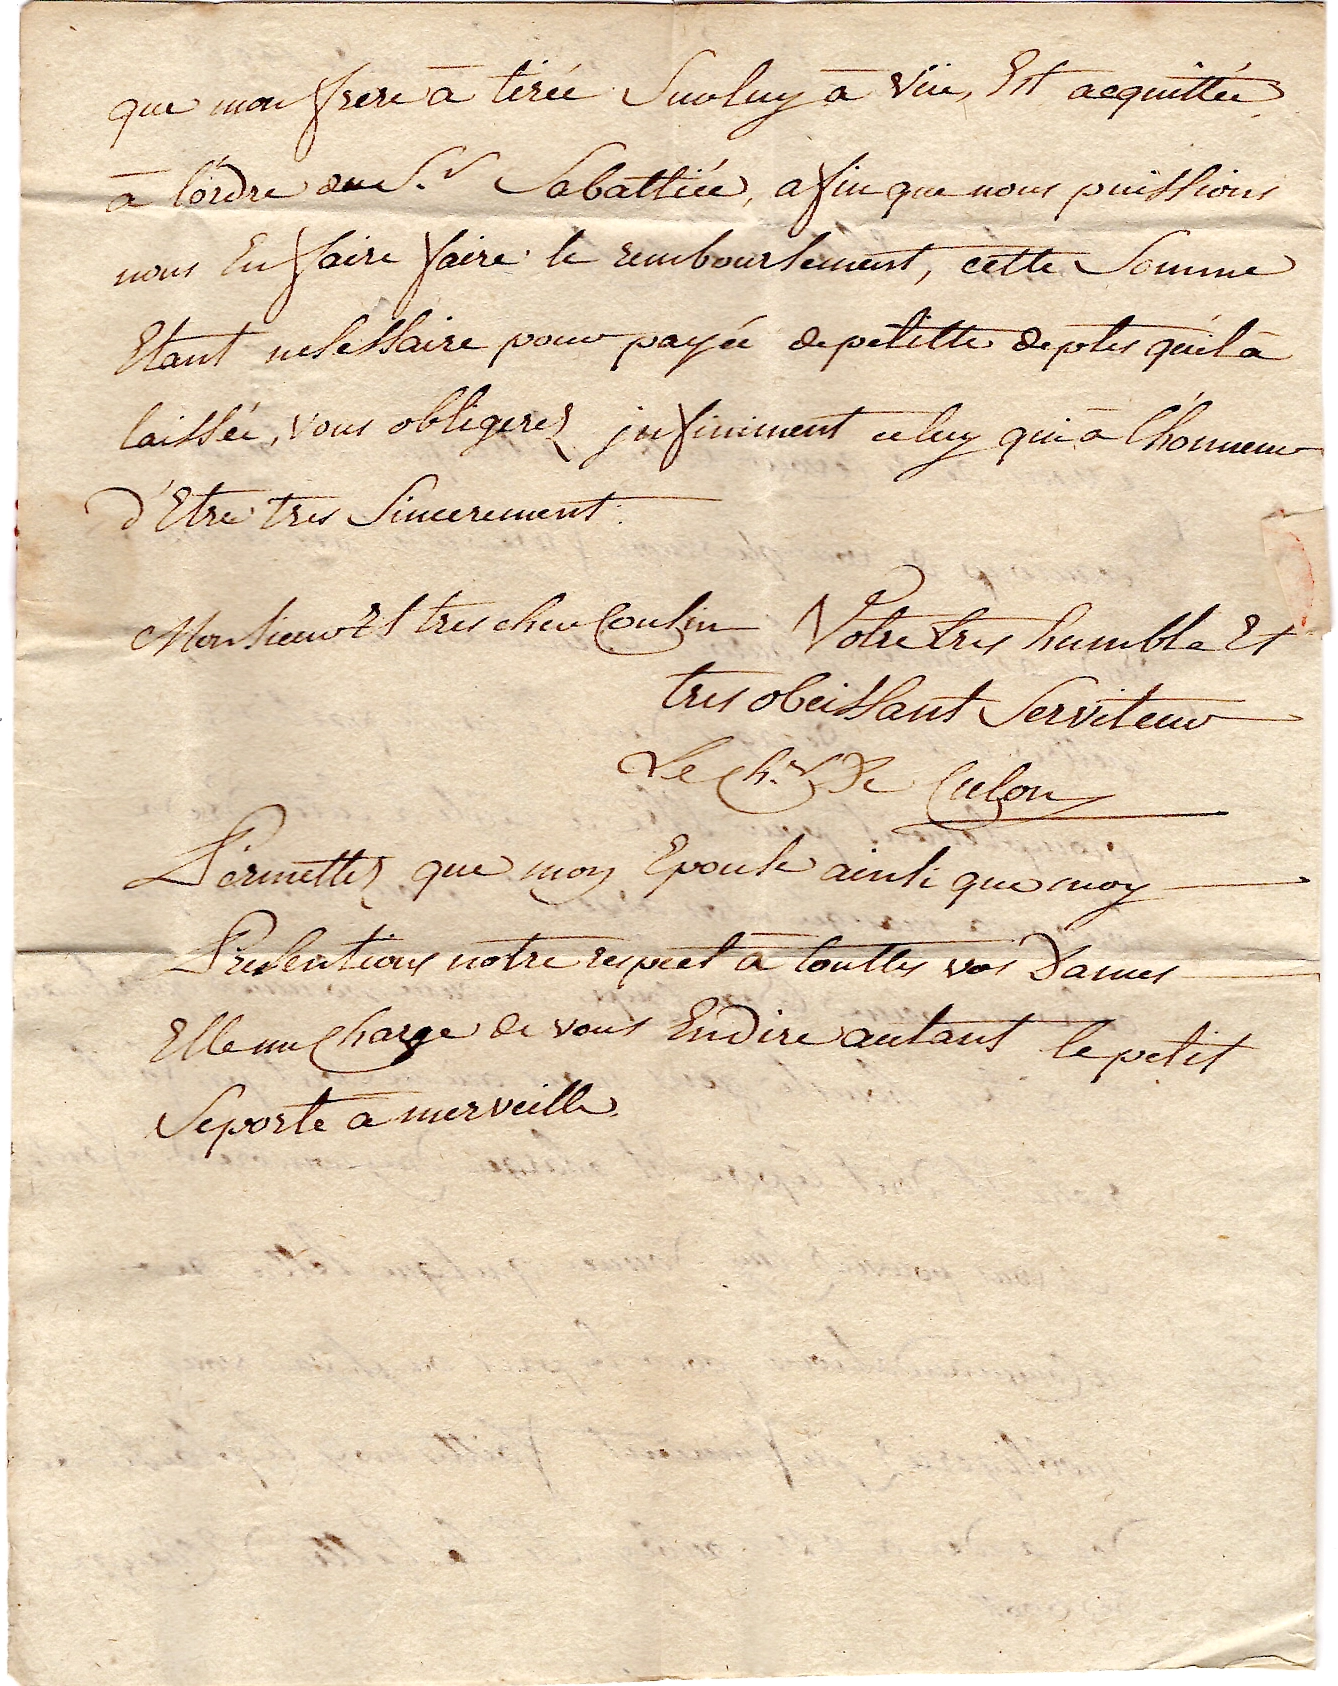 que mon frere à tirée Sur luy à vüe, Est acquittée
à l'ordre du S.r Sabattiée, afin que nous puissions
nous En faire faire le remboursement, cette Somme
Etant nesessaire pour payée de petitte deptes qu'il à
laissée, vous obligerez jnfiniment celuy qui à l'honneur
d'Etre tres Sincerement.
Monsieur Et tres cher Cousin Votre tres humble Et
tres obeissant Serviteur
Le Ch.r De Culon
Permettez que mon Epouse ainsi que moy
Presentions notre respect à touttes vos Dames
Elle me charge de vous En dire autant le petit
Se porte à merveille.